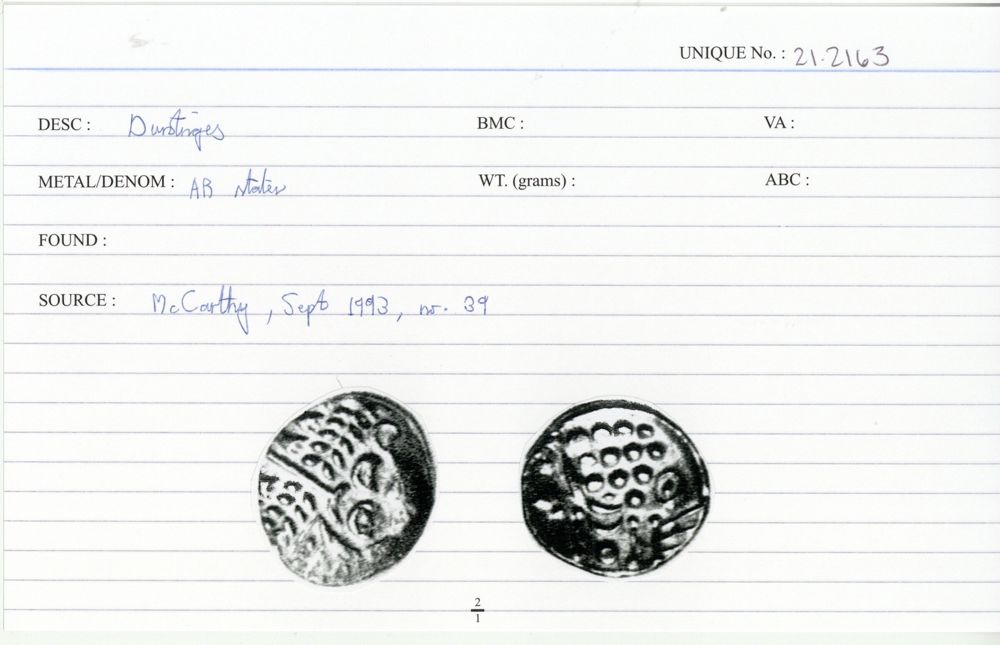 UNIQUE No. : 21.2163
DESC : Durotriges BMC : VA :
METAL/DENOM : AR stater WT. (grams) : ABC :
FOUND :
SOURCE : McCarthy, Sept 1993, no. 39
2
1